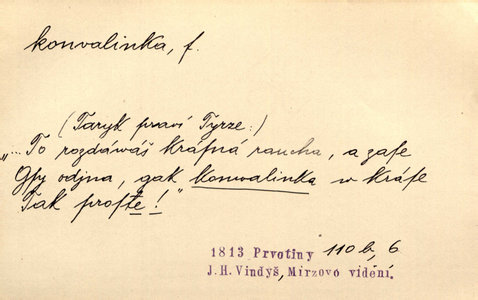 konvalinka, f.
(Taryk praví Tyrze:)
„...To rozdáwáš kráſná raucha, a zaſe
Gſy odjna, gak konwalinka w kráſe
Tak proſtě!"
1813 Prvotiny 110b, 6
J.H. Vindyš, Mirzovo vidění.